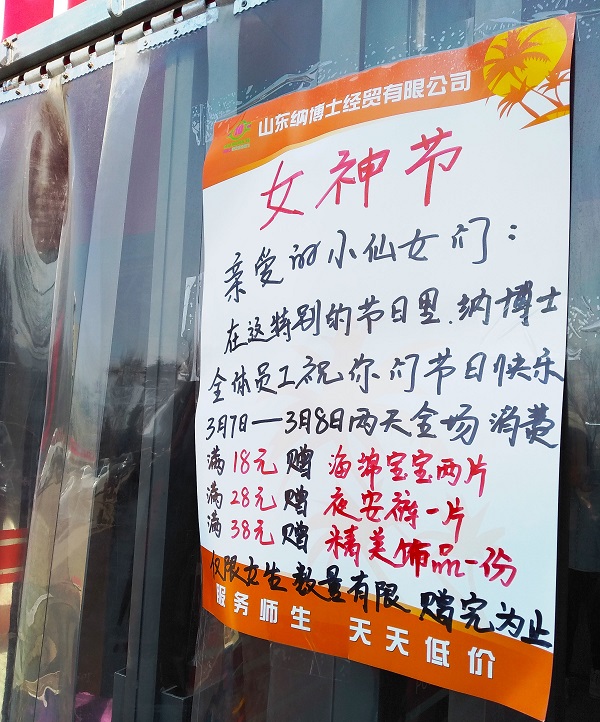 山东纳博士经贸有限公司
女神节
亲爱的小仙女们:
在这特别的节日里,纳博士
全体员工祝你们节日快乐
3月7日—3月8日两天全场消费
满18元赠海绵宝宝两片
满28元赠夜安裤一片
满38元赠精美饰品一份
仅限女生 数量有限 赠完为止
服务师生 天天低价